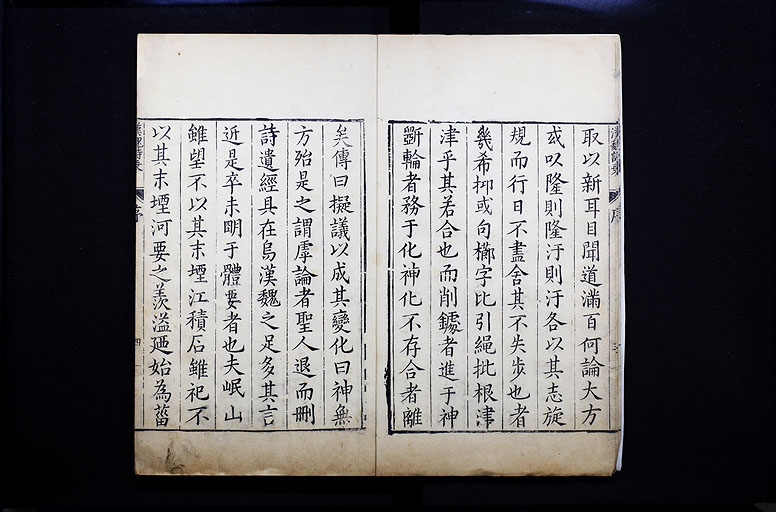 漢魏詩乘
序
三
取以新耳目聞道滿百何論大方
或以隆則隆汙則汙各以其志旋
規而行日不盡舍其不失步也者
幾希抑或句櫛字比引繩批根津
津乎其若合也而削鐻者進于神
斵輪者務于化神化不存合者離
矣傳曰擬議以成其變化曰神無
方殆是之謂虖論者聖人退而刪
詩遺經具在烏漢魏之足多其言
近是卒未明于體要者也夫岷山
雖望不以其末堙江積石雖祀不
以其末堙河要之羨溢廼始為菑
漢魏詩乘
序
四